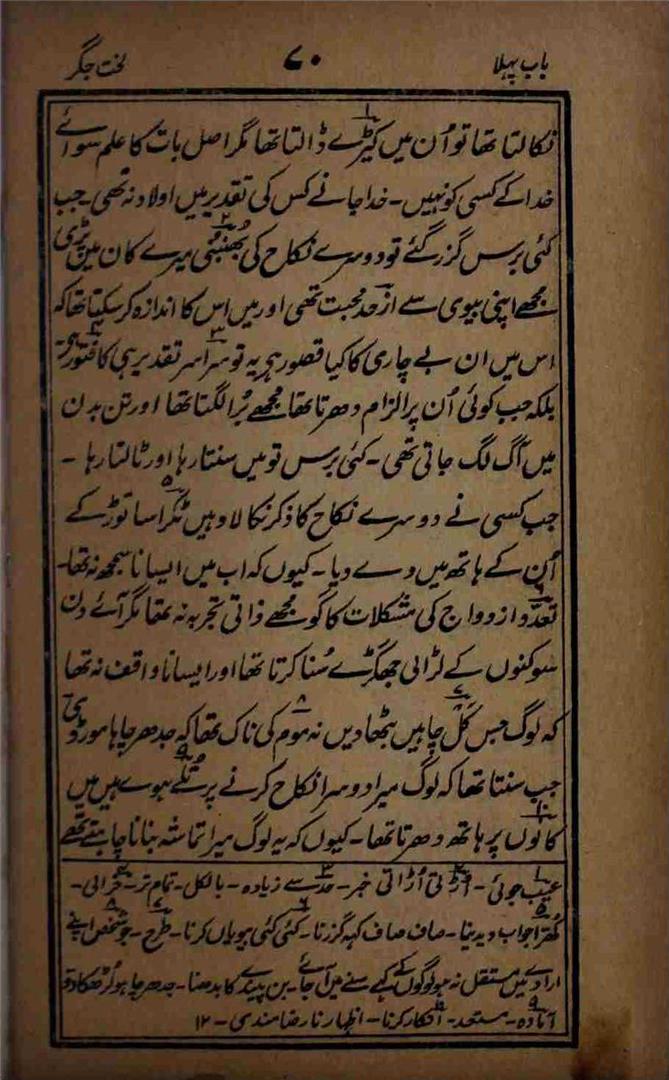 باب پہلا ۷۰ لخت جگر
نکالتا تھا تو اُن میں کیڑے ڈالتا تھا مگر اصل بات کا علم سوائے
خدا کے کسی کو نہیں - خدا جانے کس کی تقدیر میں اولاد نہ تھی جب
کئی برس گزر گئے تو دوسرے نکاح کی بُھنبُھنی میرے کان میں پڑی
مجھے اپنی بیوی سے از حد محبت تھی اور میں اس کا اندازہ کر سکتا تھا کہ
اس میں ان بے چاری کا کیا قصور ہے یہ تو سراسر تقدیر ہی کا فتور ہے
بلکہ جب کوئی اُن پر الزام دھرتا تھا مجھے بُرا لگتا تھا اور تن بدن
میں آگ لگ جاتی تھی - کئی برس تو میں سنتا رہا اور ٹالتا رہا -
جب کسی نے دوسرے نکاح کا ذکر نکالا وہیں ٹکڑا سا توڑ کے
اُن کے ہاتھ میں دے دیا - کیوں کہ اب میں ایسا نا سمجھ نہ تھا -
تعدّد ازدواج کی مشکلات کا گو مجھے ذاتی تجربہ نہ تھا مگر آئے دن
سوکنوں کے لڑائی جھگڑے سُنا کرتا تھا اور ایسا نا واقف نہ تھا
کہ لوگ جس کَل چاہیں بٹھا دیں نہ موم کی ناک تھا کہ جدھر چاہا موڑ دی
جب سنتا تھا کہ لوگ میرا دوسرا نکاح کرنے پر تُلے ہوے ہیں میں
کانوں پر ہاتھ دھرتا تھا - کیوں کہ یہ لوگ میرا تماشہ بنانا چاہتے تھے
۱ عیب جوئی - ۲ اُڑتی اُڑاتی خبر - ۳ حد سے زیادہ - بالکل - تمام تر - ۴ خرابی -
۵ کُھرا جواب دیدینا - صاف صاف کہہ گزرنا - ۶ کئی کئی بیویاں کرنا - ۷ طرح - ۸ جو شخص اپنے
ارادے میں مستقل نہ ہو لوگوں کے کہے سنے میں آجائے - بن پیندے کا بدھنا - جدھر چاہو لڑھکا دو
۹ آمادہ - مستعد - ۱۰ انکار کرنا - اظہار نا رضامندی - ۱۲